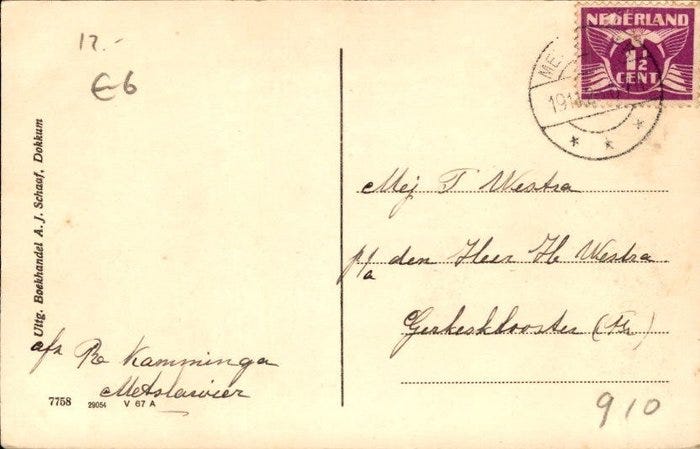 12.-
€6
NEDERLAND
1½
CENT
ME
Uitg. Boekhandel A. J. Schaaf, Dokkum
Mej T Westra
p/a den Heer H Westra
Gerkesklooster (Fr)
afz R Kamminga
Metslawier
7758 29054 V 67 A
910